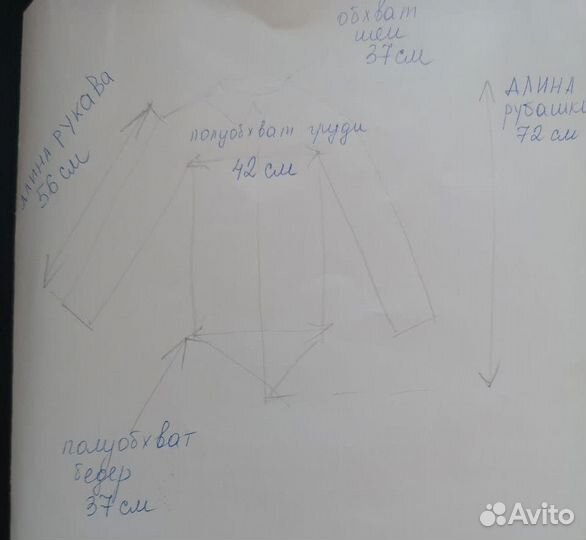 обхват
шеи
37см
ДЛИНА РУКАВА
56см
полуобхват груди
42 см
ДЛИНА
рубашки
72 см
полуобхват
бедер
37 см
Avito